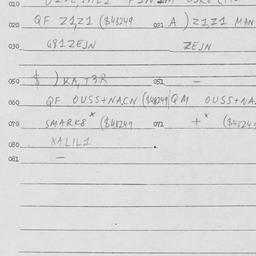 010
020 QF Z1,Z1 ($48249 021 A ) Z1Z1 MAN
030 G81ZEJN ZEJN
050 $ ) KA, T3R 051 —
060 QF OUSS+NACN ($48249 QM OUSS+NA
070 SMARK8 x ($48249 071 + x ($4824
080 XALIL1
081 —